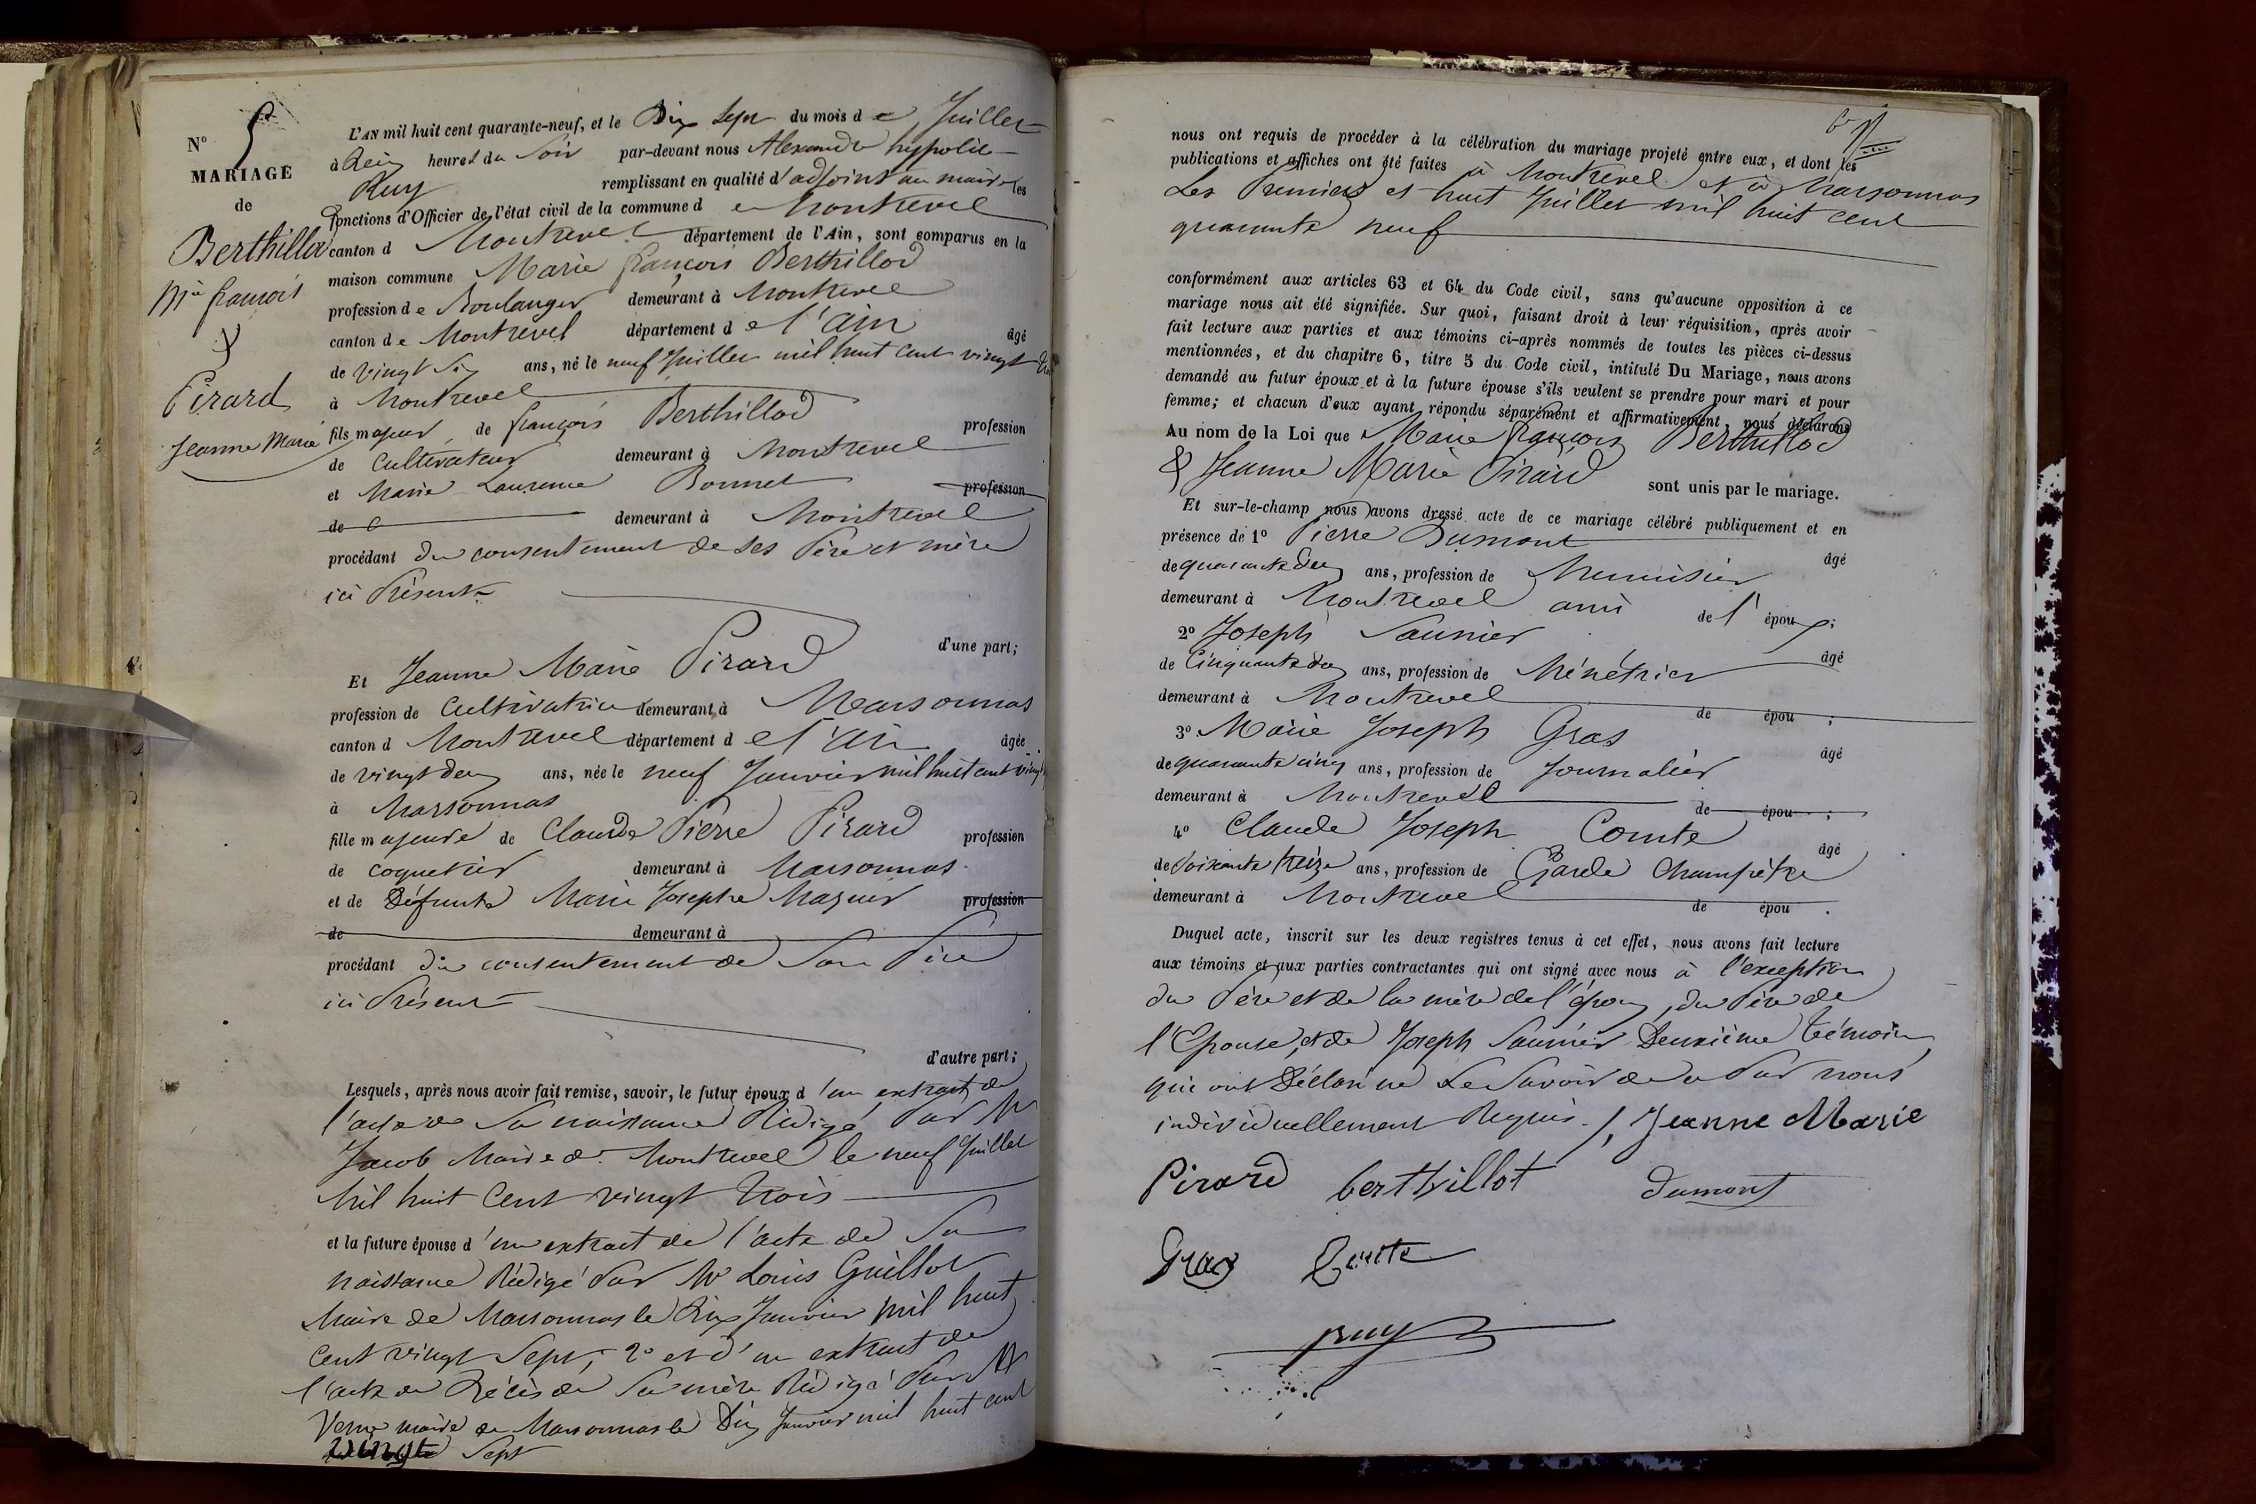 N° 5
MARIAGE
de
Berthillod
Mie françois
&
Pirard
Jeanne Marie
L'AN mil huit cent quarante-neuf, et le Dix Sept du mois de Juillet
à heures du Soir par-devant nous Alexandre hyppolite
Ruy remplissant en qualité d'adjoint au maire les
fonctions d'Officier de l'état civil de la commune de Montrevel
canton d Montrevel département de l'Ain, sont comparus en la
maison commune Marie françois Berthillod
profession de Boulanger demeurant à Montrevel
canton de Montrevel département de l'ain âgé
de vingt Six ans, né le neuf Juillet mil huit cent vingt
à Montrevel
fils majeur de françois Berthillod profession
de Cultivateur demeurant à Montrevel
et Marie Laurence Bonnet profession
de demeurant à Montrevel
procédant du consentement de ses Père et mère
ici Présents
d'une part;
Et Jeanne Marie Pirard
profession de Cultivatrice demeurant à Marsonnas
canton d Montrevel département de l'Ain âgée
de vingt deux ans, née le neuf Janvier mil huit cent vingt
à Marsonnas
fille majeure de Claude Pierre Pirard profession
de coquetier demeurant à Marsonnas
et de Défunte Marie Josephe Mazuir profession
de demeurant à
procédant du consentement de Son Père
ici Présent
d'autre part;
Lesquels, après nous avoir fait remise, savoir, le futur époux d'un extrait de
l'acte de Sa naissance Rédigé Par Mr
Jacob Maire de Montrevel le neuf Juillet
Mil huit Cent vingt trois
et la future épouse d'un extrait de l'acte de Sa
naissance Rédigé Par Mr Louis Guillot
Maire de Marsonnas le Dix Janvier mil huit
Cent vingt Sept, 2° et d'un extrait de
l'acte de Décès de Sa mère Rédigé Par Mr
maire de Marsonnas le Dix Janvier mil huit cent
vingt Sept
nous ont requis de procéder à la célébration du mariage projeté entre eux, et dont les
publications et affiches ont été faites à Montrevel et à Marsonnas
Les Premier et huit Juillet mil huit cent
quarante neuf
conformément aux articles 63 et 64 du Code civil, sans qu'aucune opposition à ce
mariage nous ait été signifiée. Sur quoi, faisant droit à leur réquisition, après avoir
fait lecture aux parties et aux témoins ci-après nommés de toutes les pièces ci-dessus
mentionnées, et du chapitre 6, titre 5 du Code civil, intitulé Du Mariage, nous avons
demandé au futur époux et à la future épouse s'ils veulent se prendre pour mari et pour
femme; et chacun d'eux ayant répondu séparément et affirmativement, nous déclarons
Au nom de la Loi que Marie françois Berthillod
& Jeanne Marie Pirard sont unis par le mariage.
Et sur-le-champ nous avons dressé acte de ce mariage célébré publiquement et en
présence de 1° Pierre Dumont âgé
de quarante deux ans, profession de Menuisier
demeurant à Montrevel ami de l'époux;
2° Joseph Saunier âgé
de Cinquante deux ans, profession de Ménétrier
demeurant à Montrevel de épou ;
3° Marie Joseph Gras âgé
de quarante cinq ans, profession de Journalier
demeurant à Montrevel de épou ;
4° Claude Joseph Comte âgé
de Soixante treize ans, profession de Garde Champêtre
demeurant à Montrevel de épou .
Duquel acte, inscrit sur les deux registres tenus à cet effet, nous avons fait lecture
aux témoins et aux parties contractantes qui ont signé avec nous à l'exception
du Père et de la mère de l'époux, du Père de
l'Epouse, et de Joseph Saunier Deuxième témoin,
qui ont Déclaré ne Le Savoir de ce Par nous
individuellement Requis. Jeanne Marie
Pirard berthillot dumont
Gras Comte
Ruy